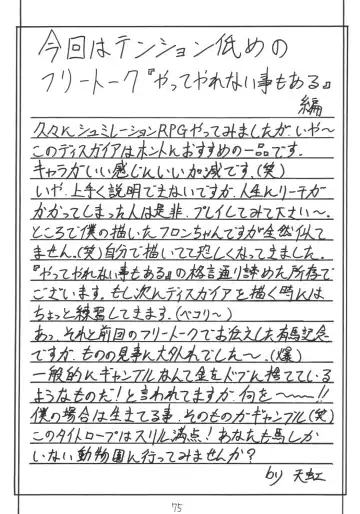 今回はテンション低めの
フリートーク『やってやれない事もある』
編
久々にシュミレーションRPGやってみましたが、いや〜
このディスガイアはホントにおすすめの一品です。
キャラがいい感じにいい加減です。(笑)
いや、上手く説明できないですが、人生にリーチが
かかってしまった人は是非、プレイしてみて下さい〜。
ところで僕の描いたフロンちゃんですが全然似て
ません。(笑)自分で描いてて悲しくなってきました。
『やってやれない事もある』の格言通り諦めた所存で
ございます。もし次にディスガイアを描く時には
ちょっと練習してきます。(ペコリ〜)
あっ、それと前回のフリートークでお伝えした有馬記念
ですが、ものの見事に大外れでした〜。(爆)
一般的にギャンブルなんて金をドブに捨てている
ようなものだ!と言われてますが、何を〜――!!
僕の場合は生きてる事、そのものがギャンブル(笑)
このタイトロープはスリル満点!あなたも馬しか
いない動物園に行ってみませんか?
by 天虹
75